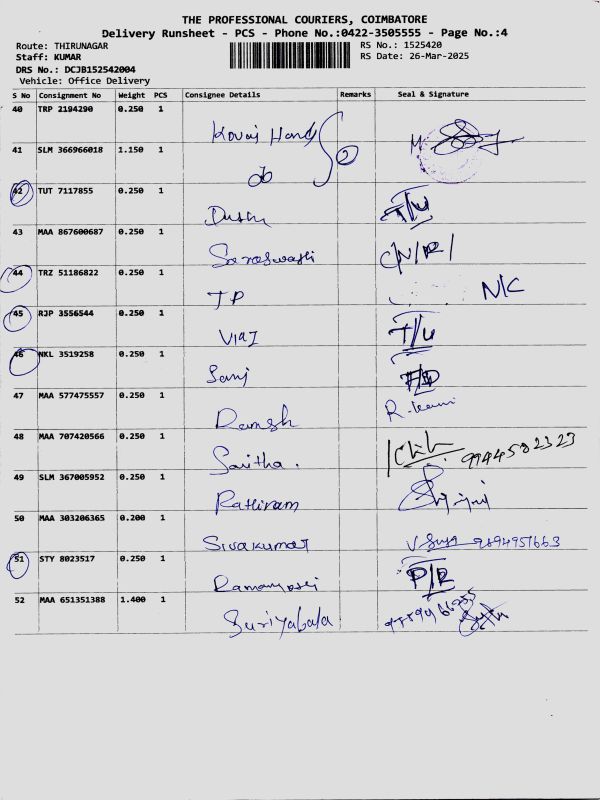 THE PROFESSIONAL COURIERS, COIMBATORE
Delivery Runsheet - PCS - Phone No.:0422-3505555 - Page No.:4
Route: THIRUNAGAR
Staff: KUMAR
DRS No.: DCJB152542004
Vehicle: Office Delivery
RS No.: 1525420
RS Date: 26-Mar-2025
S No Consignment No Weight PCS Consignee Details Remarks Seal & Signature
40 TRP 2194290 0.250 1 Kovai Hand
41 SLM 366966018 1.150 1 do 2
42 TUT 7117855 0.250 1 T/U
43 MAA 867600687 0.250 1 Saraswathi C/N/R/
44 TRZ 51186822 0.250 1 TP N/C
45 RJP 3556544 0.250 1 T/U
46 NKL 3519258 0.250 1 Sanj
47 MAA 577475557 0.250 1 Ramesh
48 MAA 707420566 0.250 1 Savitha. 9944582323
49 SLM 367005952 0.250 1 Rathiram
50 MAA 303206365 0.200 1 Sivakumar 9894951663
51 STY 8023517 0.250 1 P/R
52 MAA 651351388 1.400 1 Suriyabala